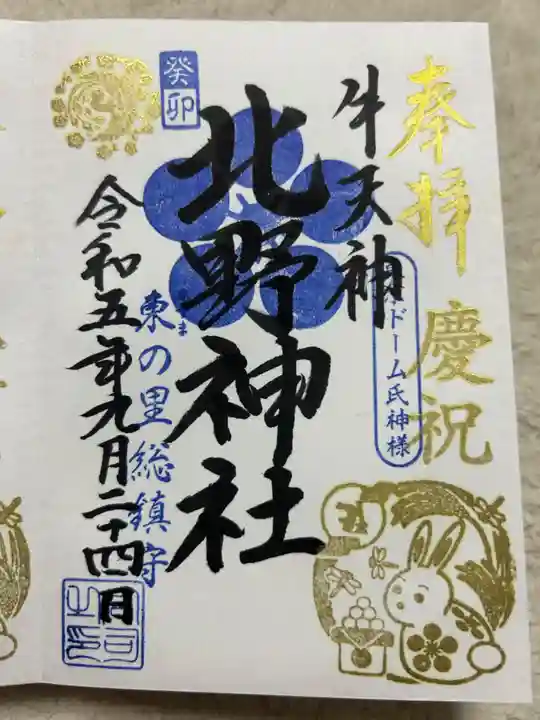 奉拝 慶祝
牛天神
ドーム氏神様
北野神社
癸卯
東の里総鎮守
ま
令和五年九月二十四日